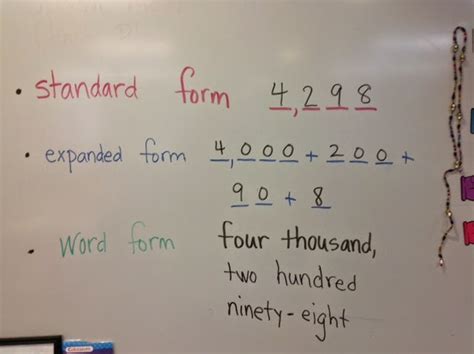 • standard form 4,298
• expanded form 4,000 + 200 +
90 + 8
• word form four thousand,
two hundred
ninety-eight